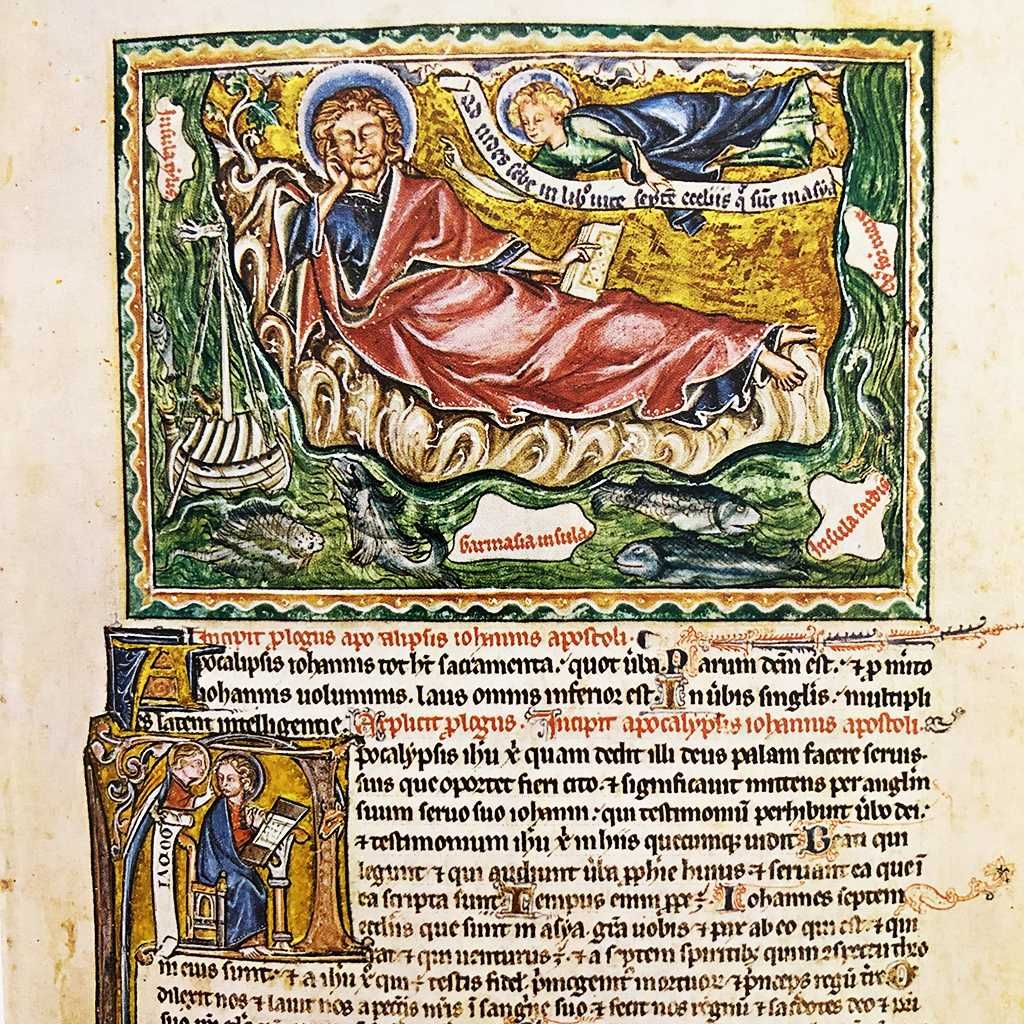 Quod uides scribe in lib' mitte septē eccliis q̄ sūt in asya
Garmasia insula
Insula sardis
Incipit plogus apocalipsis iohannis apostoli.
Apocalipsis iohannis tot ht sacramenta. quot ūba. Parum dcm̄ est. ⁊ p mito
iohannis uoluminis. laus omnis inferior est. In ūbis singlis. multipli
es latent intelligentie. Explicit plogus. Incipit apocalypsis iohannis apostoli.
Apocalypsis ihu x̄ quam dedit illi deus palam facere seruis
suis que oportet fieri cito. ⁊ significauit mittens per anglm
suum seruo suo iohanni. qui testimoniū perhibuit ūbo dei.
⁊ testimonium ihu x̄ in hiis quecumq; uidit. Beati qui
legunt ⁊ qui audiunt ūba pphie huius ⁊ seruant ea que ī
ea scripta sunt. Tempus enim ppe ē. Iohannes septem
eccliis que sunt in asya. gra uobis ⁊ pax ab eo qui est. ⁊ qui
erat ⁊ qui uenturus ē. ⁊ a septem spiritibȝ qui in conspectu thro
ni eius sunt. ⁊ a ihu x̄ qui ē testis fidel' pimogenit' mortuor ⁊ pinceps regū t're. Q
dilexit nos ⁊ lauit nos a peccis nris ī sangne suo ⁊ fecit nos regnū ⁊ sacdotes deo ⁊ pri